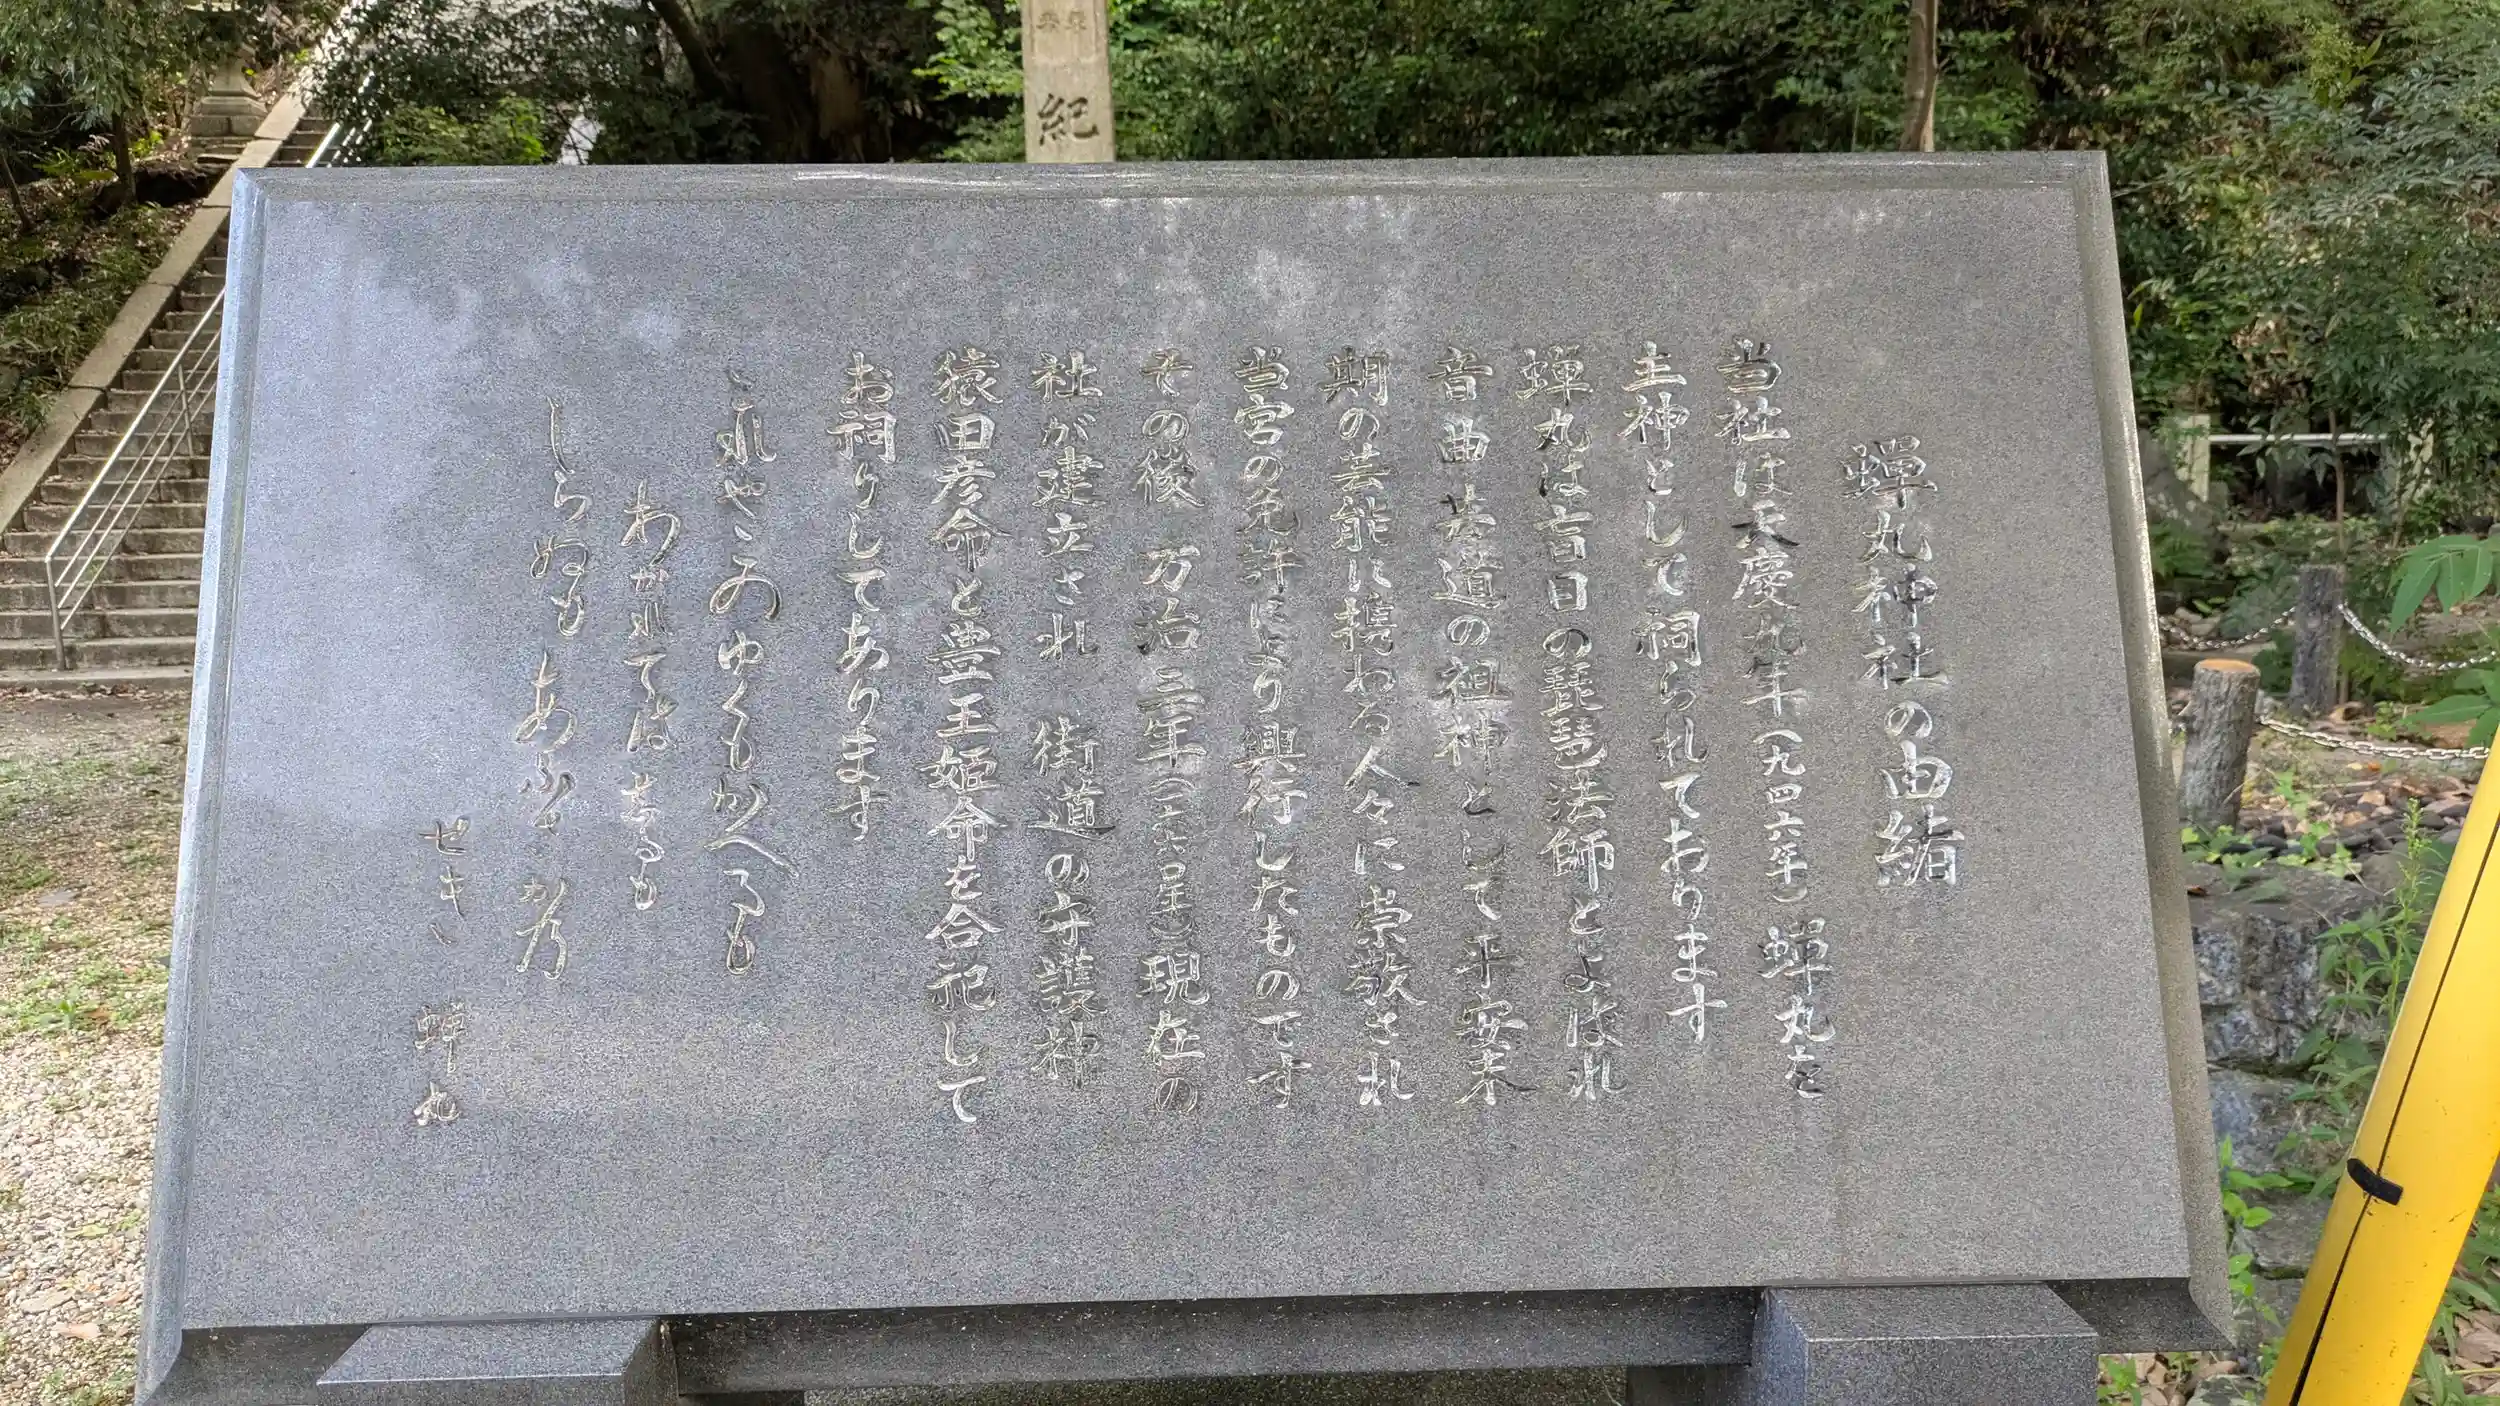 紀
蝉丸神社の由緒
当社は天慶九年(九四六年)蝉丸を
主神として祠られております
蝉丸は盲目の琵琶法師とよばれ
音曲芸道の祖神として平安末
期の芸能に携わる人々に崇敬され
当宮の免許により興行したものです
その後 万治三年(一六六〇年)現在の
社が建立され 街道の守護神
猿田彦命と豊玉姫命を合祀して
お祠りしてあります
これやこのゆくもかへるも
わかれてはしるも
しらぬもあふさかの
せき 蝉丸